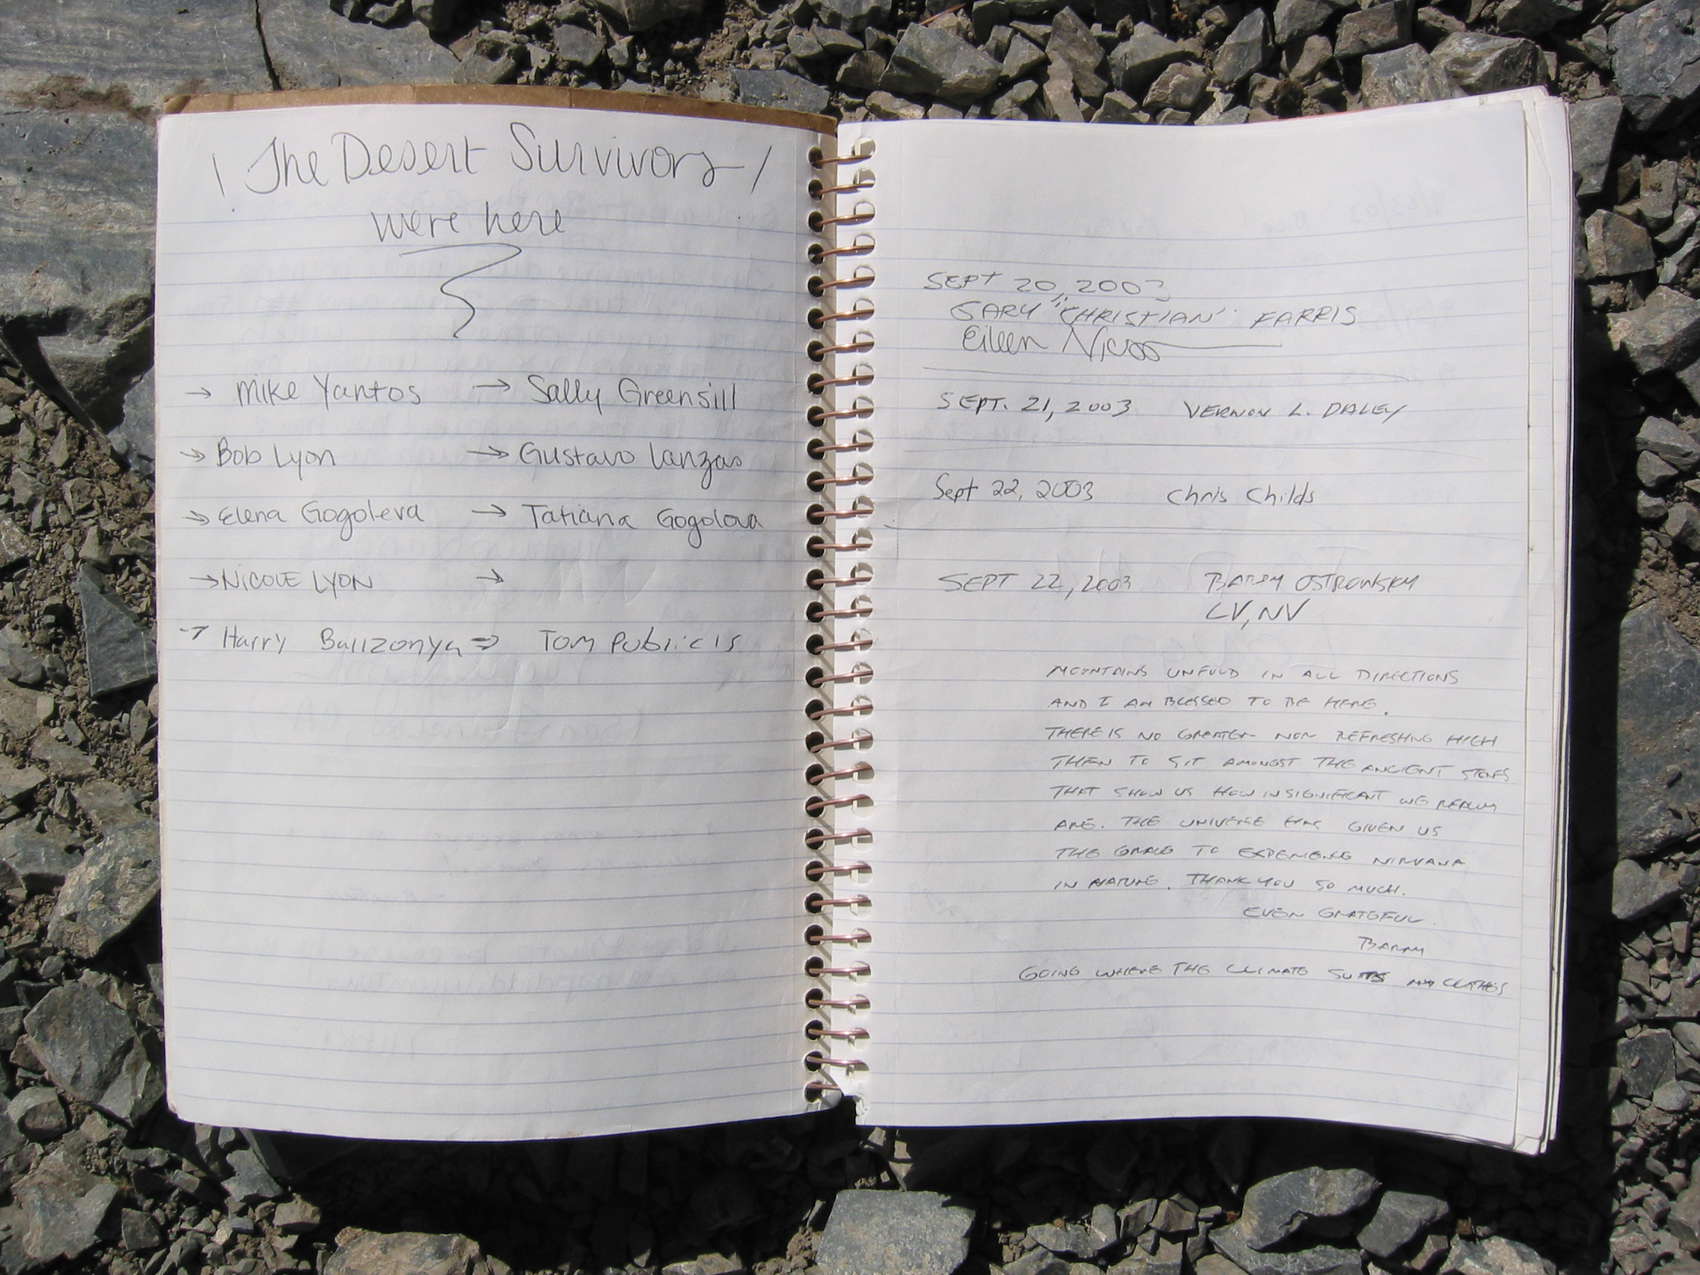 ! The Desert Survivors !
were here
→ Mike Yantos → Sally Greensill
→ Bob Lyon → Gustavo Lanzas
→ Elena Gogoleva → Tatiana Gogolova
→ NICOLE LYON →
→ Harry Ballzonya → TOM Publicis
SEPT 20, 2003
GARY "CHRISTIAN" FARRIS
Eileen
SEPT. 21, 2003 VERNON L. DALEY
Sept 22, 2003 Chris Childs
SEPT 22, 2003 BARRY OSTROWSKY
LV, NV
MOUNTAINS UNFOLD IN ALL DIRECTIONS
AND I AM BLESSED TO BE HERE.
THERE IS NO GREATER NOR REFRESHING HIGH
THEN TO SIT AMONGST THE ANCIENT STONES
THAT SHOW US HOW INSIGNIFICANT WE REALLY
ARE. THE UNIVERSE HAS GIVEN US
THE GRACE TO EXPERIENCE NIRVANA
IN NATURE. THANK YOU SO MUCH.
EVEN GRATEFUL.
BARRY
GOING WHERE THE CLIMATE SUITS MY CLOTHES